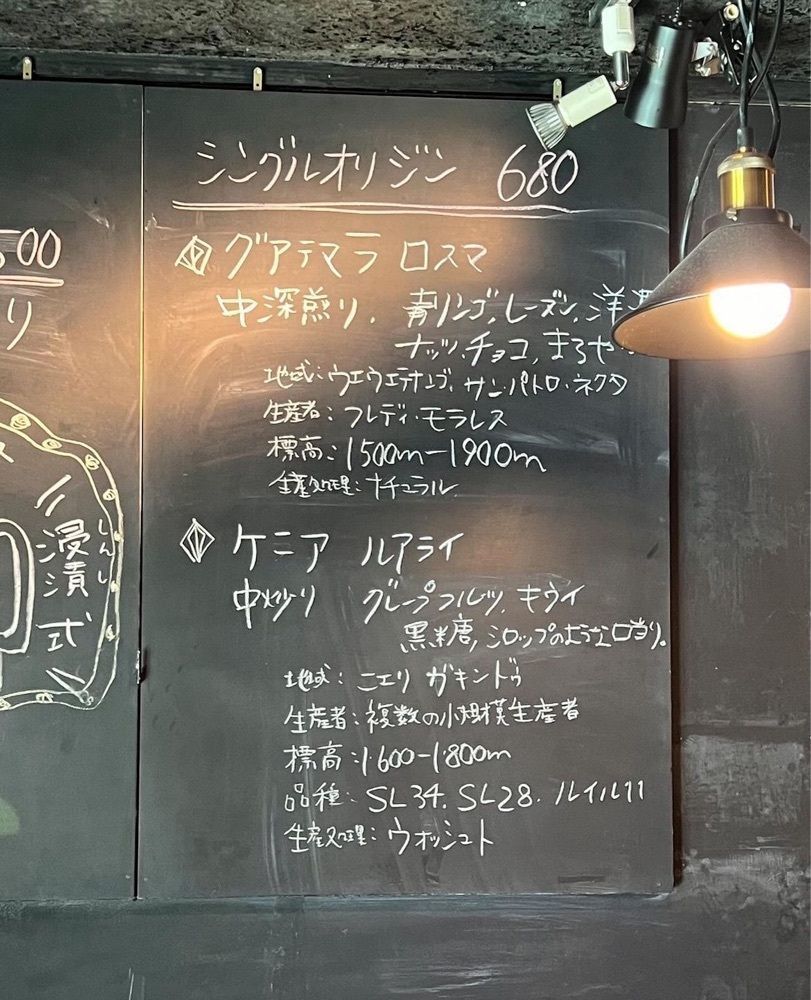 シングルオリジン 680
グアテマラ ロスマ
中深煎り. 青リンゴ, レーズン, 洋
ナッツ, チョコ, まろや
地域: ウエウエテナンゴ, サン・ペドロ・ネクタ
生産者: フレディ・モラレス
標高: 1500m-1900m
生産処理: ナチュラル
ケニア ルアライ
中炒り グレープフルーツ, キウイ
黒糖, シロップのような口当り。
地域: ニエリ ガキンドゥ
生産者: 複数の小規模生産者
標高: 1600-1800m
品種: SL34. SL28. ルイル11
生産処理: ウォッシュト
500
り
浸漬式
しんし